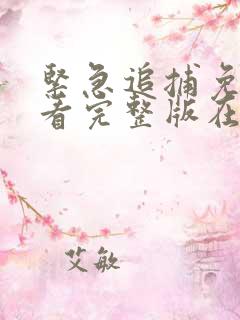 緊急追捕免
看完整版在
艾敏